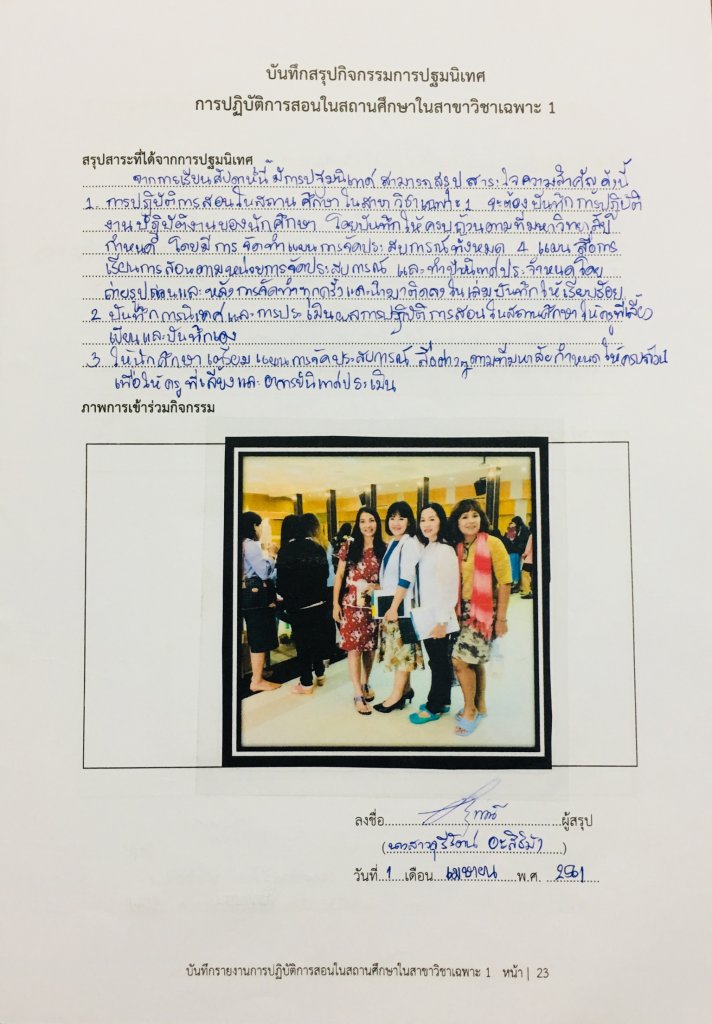 บันทึกสรุปกิจกรรมการปฐมนิเทศ
การปฏิบัติการสอนในสถานศึกษาในสาขาวิชาเฉพาะ 1
สรุปสาระที่ได้จากการปฐมนิเทศ
จากการเรียนสัปดาห์นี้ มีการปฐมนิเทศ สามารถสรุป สาระ ใจความสำคัญ ดังนี้
1. การปฏิบัติการสอนในสถานศึกษาในสาขาวิชาเฉพาะ 1 จะต้องบันทึกการปฏิบัติ
งานปฏิบัติงานของนักศึกษา โดยบันทึกให้ครบถ้วนตามที่มหาวิทยาลัย
กำหนดดี โดยมีการจัดทำแผนการจัดประสบการณ์ทั้งหมด 4 แผน สื่อการ
เรียนการสอนตามหน่วยการจัดประสบการณ์ และทำป้ายนิเทศประจำหน่วย โดย
ถ่ายรูปก่อนและหลังการจัดทำทุกครั้งและนำมาติดลงในเล่มบันทึกให้เรียบร้อย
2. บันทึกการนิเทศและการประเมินผลการปฏิบัติการสอนในสถานศึกษาให้ครูพี่เลี้ยง
เขียนและบันทึกเอง
3. ให้นักศึกษา เตรียมแผนการจัดประสบการณ์ สื่อต่างๆตามที่มหาลัยกำหนดให้ครบถ้วน
เพื่อให้ครูพี่เลี้ยงและอาจารย์นิเทศประเมิน
ภาพการเข้าร่วมกิจกรรม
ลงชื่อ ผู้สรุป
(นางสาวสุรีรัตน์)
วันที่ 1 เดือน เมษายน พ.ศ. 2561
บันทึกรายงานการปฏิบัติการสอนในสถานศึกษาในสาขาวิชาเฉพาะ 1 หน้า | 23